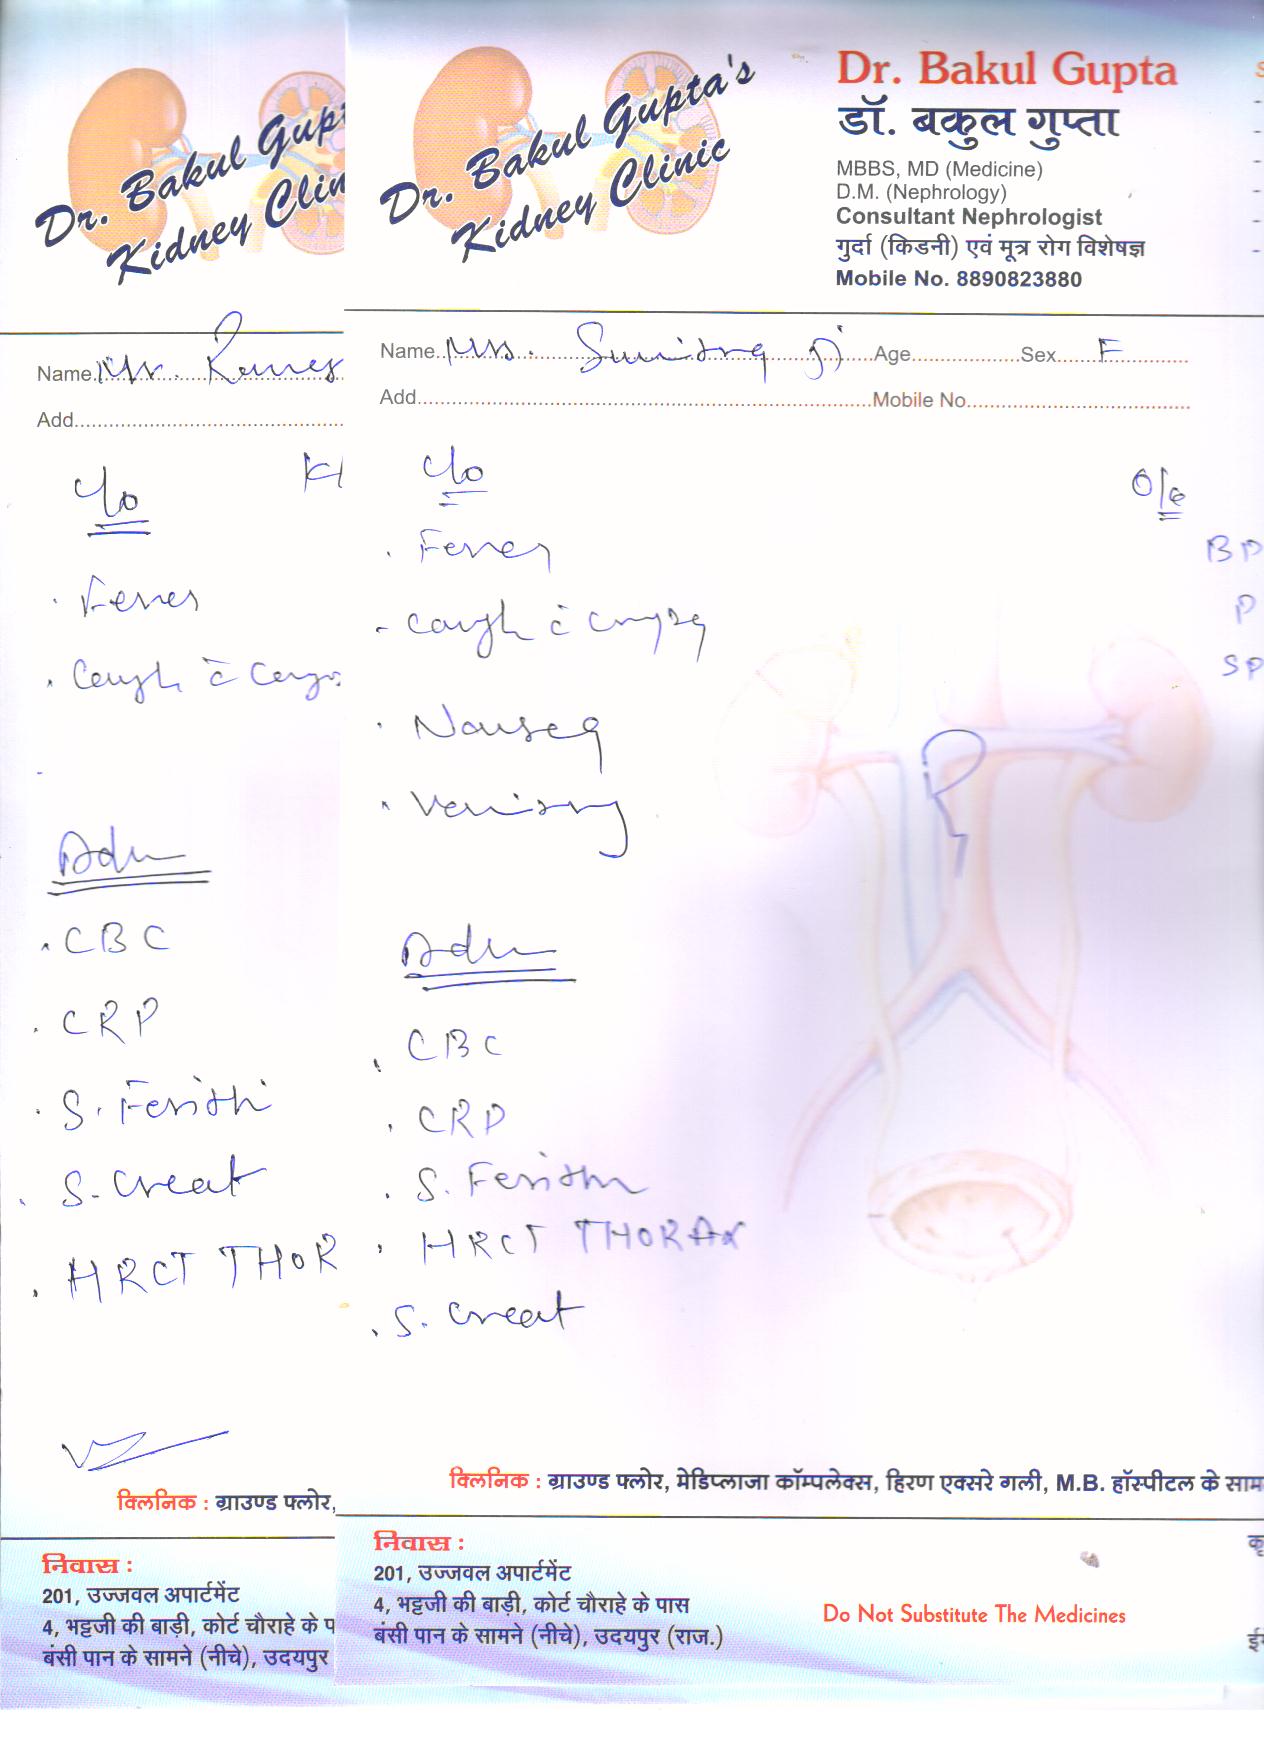 Dr. Bakul Gupt
Kidney Clin
Name. Mr. Rames
Add.
c/o
KI
. Fever
. Cough c̄ Coryz
Adv
. CBC
. CRP
. S. Ferritin
. S. Creat
. HRCT THOR
क्लिनिक : ग्राउण्ड फ्लोर,
निवास :
201, उज्जवल अपार्टमेंट
4, भट्टजी की बाड़ी, कोर्ट चौराहे के प
बंसी पान के सामने (नीचे), उदयपुर
Dr. Bakul Gupta's
Kidney Clinic
Dr. Bakul Gupta
डॉ. बकुल गुप्ता
MBBS, MD (Medicine)
D.M. (Nephrology)
Consultant Nephrologist
गुर्दा (किडनी) एवं मूत्र रोग विशेषज्ञ
Mobile No. 8890823880
Name. Mrs. Sumitra Ji Age Sex F
Add. Mobile No.
c/o
O/E
BP
P
SP
. Fever
- Cough c̄ coryza
. Nausea
. Vomiting
Adv
. CBC
. CRP
. S. Ferritin
. HRCT THORAX
. S. Creat
क्लिनिक : ग्राउण्ड फ्लोर, मेडिप्लाजा कॉम्पलेक्स, हिरण एक्सरे गली, M.B. हॉस्पीटल के साम
निवास :
201, उज्जवल अपार्टमेंट
4, भट्टजी की बाड़ी, कोर्ट चौराहे के पास
बंसी पान के सामने (नीचे), उदयपुर (राज.)
Do Not Substitute The Medicines